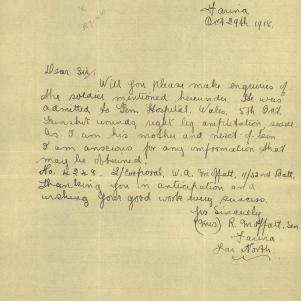 Farina
Oct 29th 1918.
Dear Sir,
Will you please make enquiries of
the soldier mentioned hereunder. He was
admitted to Gen. Hospital, Wales 5th Oct
Gunshot wounds, right leg amputation severe
As I am his mother and next-of-kin
I am anxious for any information that
may be obtained.
No. 4248. L/Corporal, W. A. Moffatt, 11/32nd Batt.
Thanking you in anticipation and
wishing your good work every success.
Yrs Sincerely
(Mrs) R. Moffatt, Sen
Farina
Far North